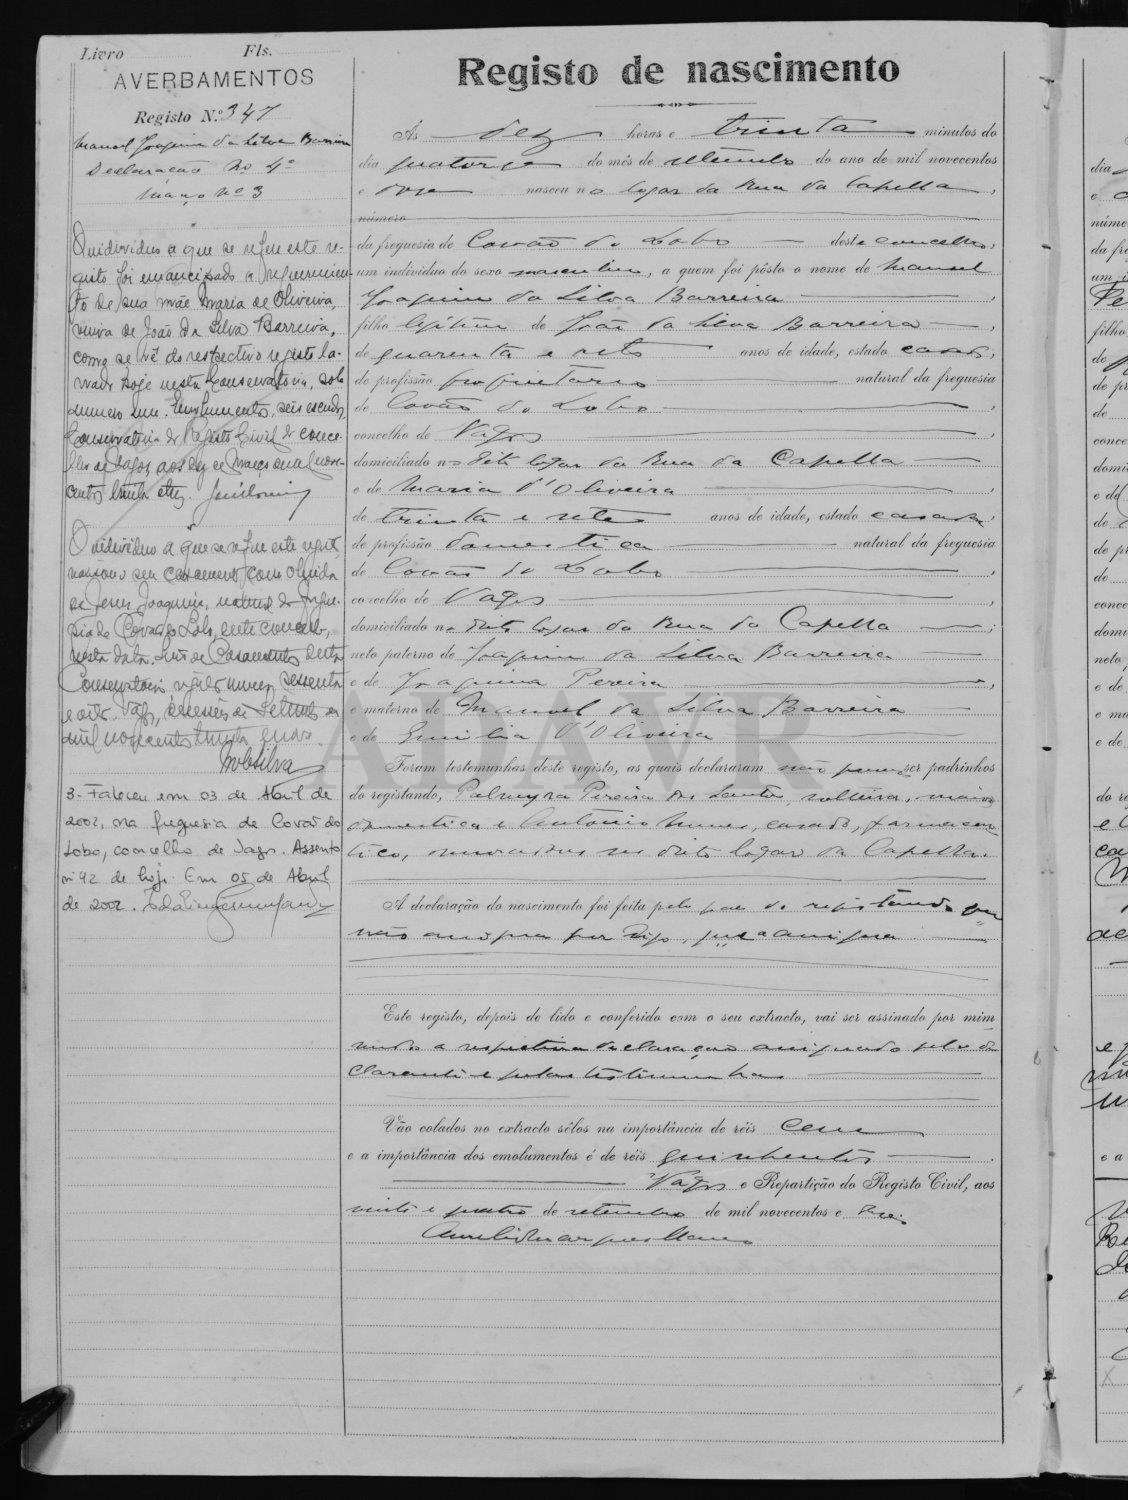 Livro Fls.
AVERBAMENTOS
Registo N.º 347
Manoel Joaquim da Silva Barreira
Declaração no 4º
Maço nº 3
O individuo a que se refere este re-
gisto foi emancipado a requerimen-
to de sua mãe Maria de Oliveira,
viuva de João da Silva Barreira,
como se vê do respectivo registo la-
vrado hoje nesta Conservatoria, sob
numero um. Emolumentos, seis escudos,
Conservatoria do Registo Civil do conce-
lho de Vagos, aos dez de Março de mil nove-
centos trinta e
O individuo a que se refere este registo
seu casamento com
de Jesus Joaquina, natural da fregue-
sia de Covão do Lobo, deste concelho,
nesta data. de Casamentos desta
Conservatoria, registo numero sessenta
e oito. Vagos, dezesseis de Setembro de
mil novecentos trinta e
MdaSilva
3- Faleceu em 03 de Abril de
2002, na freguesia de Covão do
Lobo, concelho de Vagos. Assento
nº 42 de hoje. Em 05 de Abril
de 2002.
Registo de nascimento
Ás dez horas e trinta minutos do
dia quatorze do mês de setembro do ano de mil novecentos
e doze nasceu no logar da Rua da Capella,
número
da freguesia de Covão do Lobo deste concelho,
um indivíduo do sexo masculino, a quem foi pôsto o nome de Manoel
Joaquim da Silva Barreira,
filho legitimo de João da Silva Barreira,
de quarenta e oito anos de idade, estado casado,
de profissão proprietario natural da freguesia
de Covão do Lobo,
concelho de Vagos,
domiciliado no dito logar da Rua da Capella
e de Maria d'Oliveira,
de trinta e sete anos de idade, estado casada,
de profissão domestica natural da freguesia
de Covão do Lobo,
concelho de Vagos,
domiciliado no dito logar da Rua da Capella;
neto paterno de Joaquim da Silva Barreira
e de Joaquina Pereira,
e materno de Manuel da Silva Barreira
e de Emilia d'Oliveira
Foram testemunhas deste registo, as quais declararam não ser padrinhos
do registando, Palmyra Pereira dos Santos, solteira, maior,
domestica e António Nunes, casado, farmaceu-
tico, moradores no dito logar da Capella.
A declaração do nascimento foi feita pelo pae do registando que
não assigna por digo, que assigna
Este registo, depois de lido e conferido com o seu extracto, vai ser assinado por mim
sendo a respectiva declaração assignada pelo de-
clarante e pelas testemunhas
Vão colados no extracto sêlos na importância de réis cem
e a importância dos emolumentos é de réis quinhentos.
Vagos e Repartição do Registo Civil, aos
vinte e quatro de setembro de mil novecentos e doze
ADAVR